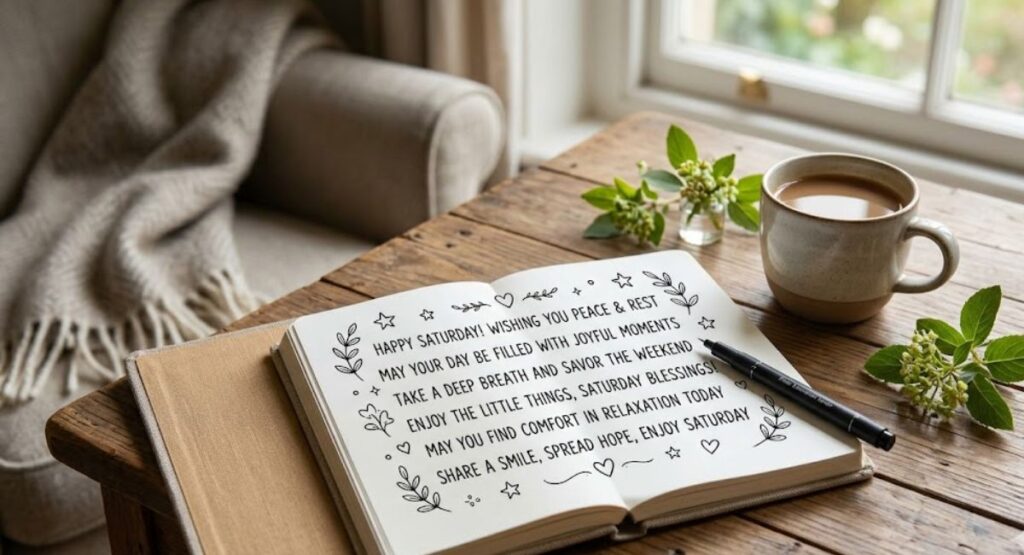 HAPPY SATURDAY! WISHING YOU PEACE & REST
MAY YOUR DAY BE FILLED WITH JOYFUL MOMENTS
TAKE A DEEP BREATH AND SAVOR THE WEEKEND
ENJOY THE LITTLE THINGS, SATURDAY BLESSINGS!
MAY YOU FIND COMFORT IN RELAXATION TODAY
SHARE A SMILE, SPREAD HOPE, ENJOY SATURDAY